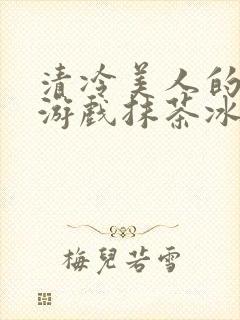 清冷美人的
游戏抹茶冰
梅兒若雪